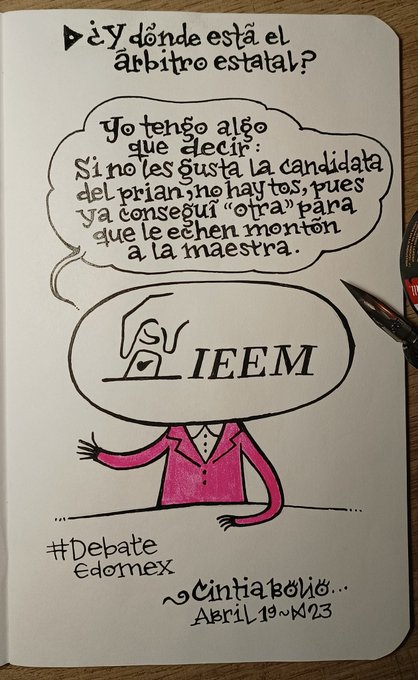 ¿Y dónde está el
árbitro estatal?
Yo tengo algo
que decir:
Si no les gusta la candidata
del prian, no hay tos, pues
ya conseguí "otra" para
que le echen montón
a la maestra.
IEEM
#Debate
Edomex
Cintia Bolio...
Abril 19~23